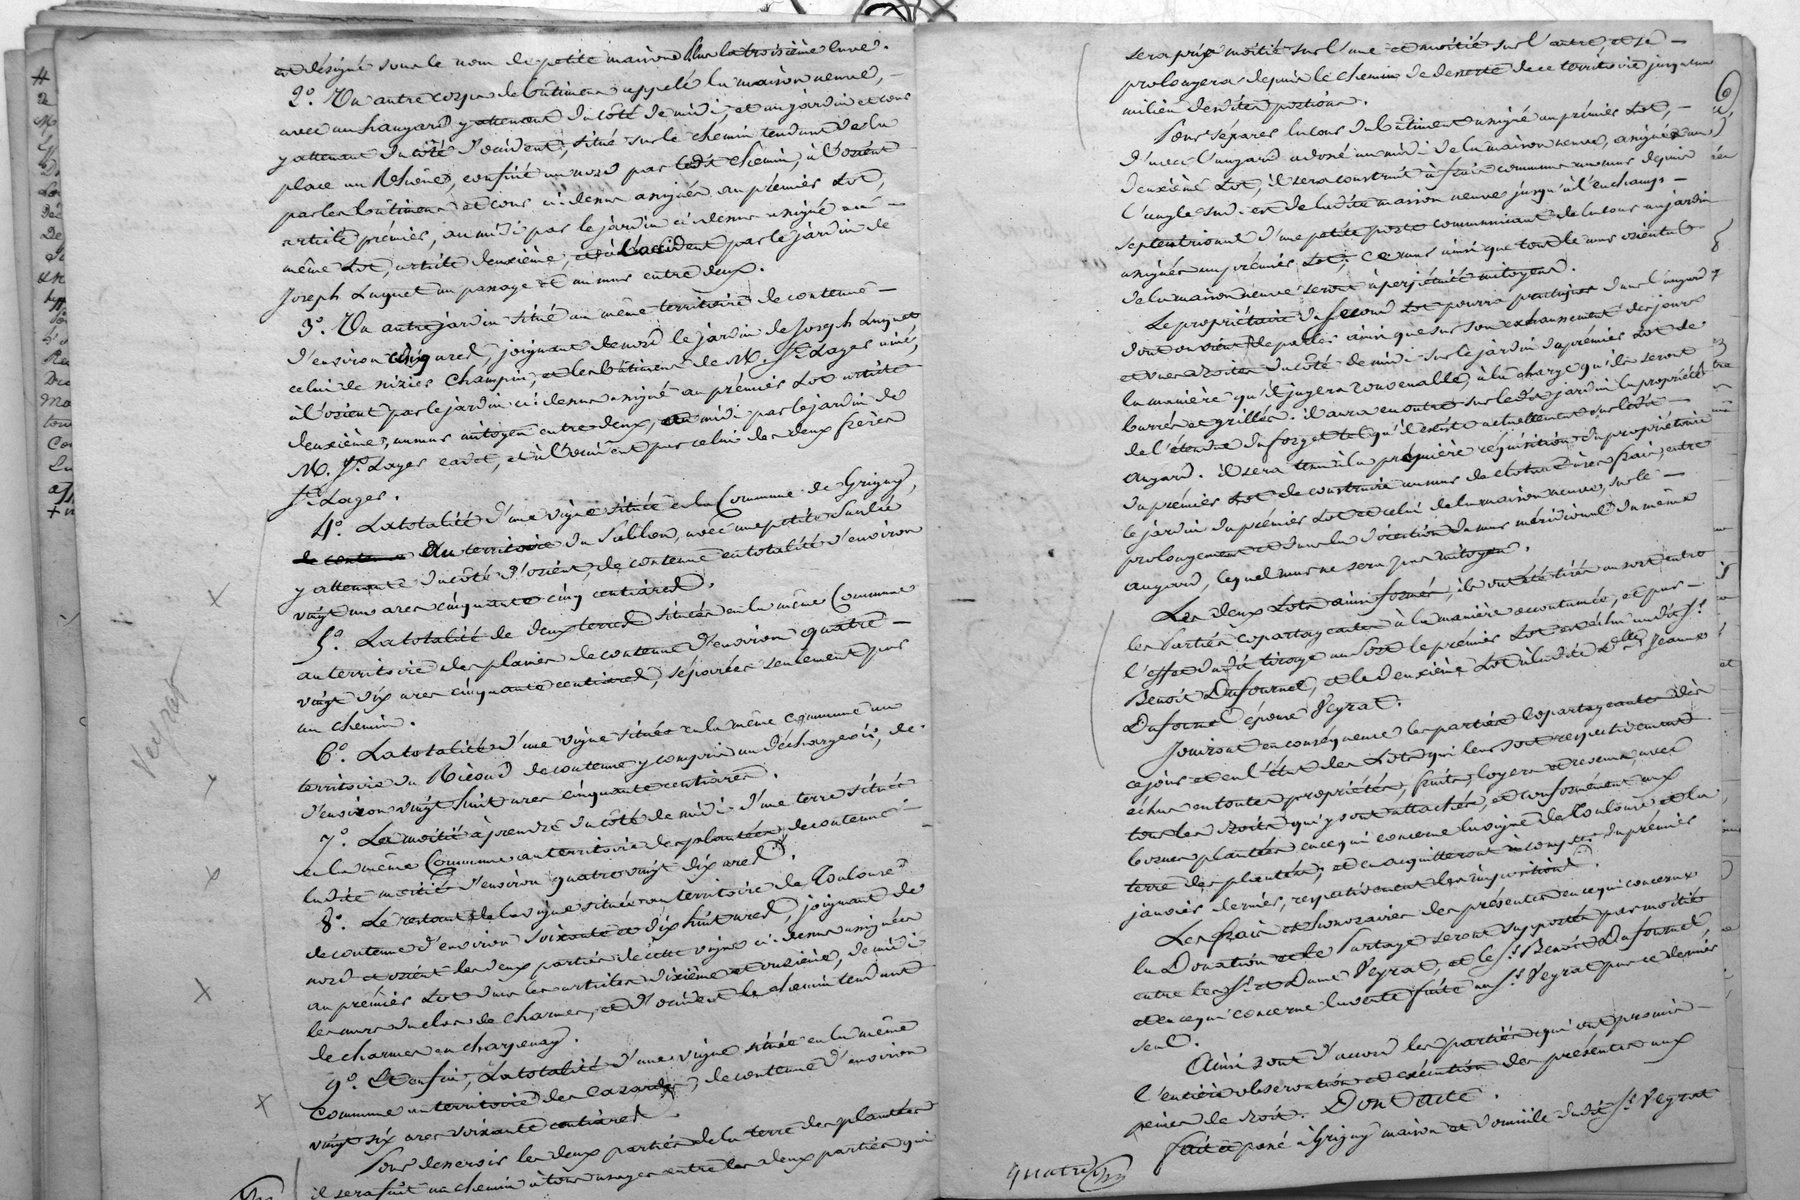 et désigné sous le nom de petite maison sur la troisième lune.
2.° Un autre corps de bâtiment appelé la maison neuve, -
avec un hangard y attenant du côté de midi, et un jardin et cour
y attenant du côté d'occident, situé sur le chemin tendant de la
place au Rhône, confiné au nord par ledit chemin, à l'orient
par les bâtimens et cour ci-dessus assignés au premier lot,
article premier, au midi par le jardin ci-dessus assigné au -
même lot, article deuxième, et à l'occident par le jardin de
Joseph Luquet un passage et un mur entre deux.
3.° Un autre jardin situé au même territoire de contenue -
d'environ cinq ares, joignant de nord le jardin de Joseph Luquet
celui de nizier Champin, et les bâtimens de M. Lager ainé,
à l'orient par le jardin ci-dessus assigné au premier lot article
deuxième, un mur mitoyen entre deux, au midi par le jardin de
M. Lager cadet, et à l'occident par celui des deux frères
Lager.
4.° La totalité d'une vigne située en la Commune de Grigny,
au territoire du Sablon, avec une petite
y attenante du côté d'orient, de contenue en totalité d'environ
vingt un ares cinquante cinq centiares.
5.° La totalité de deux terres situées en la même Commune
au territoire des plantées de contenue d'environ quatre -
vingt dix ares cinquante centiares, séparées seulement par
un chemin.
6.° La totalité d'une vigne située en la même commune au
territoire du Recoud de contenue y compris un déchargeoir, de
d'environ vingt huit ares cinquante centiares.
7.° La moitié à prendre du côté de midi d'une terre située
en la même Commune au territoire des plantées, de contenue -
ladite moitié d'environ quatre vingt dix ares.
8.° Le restant de la vigne située au territoire de Toulouse
de contenue d'environ soixante et dix huit ares, joignant de
nord et orient les deux parties de cette vigne ci-dessus assignées
au premier lot dans les articles dixième et onzième, de midi
les murs du clos de charmes, et d'occident le chemin tendant
de charmes au charpenay.
9.° Et enfin, la totalité d'une vigne située en la même
commune au territoire des Cazardes, de contenue d'environ
vingt six ares soixante centiares.
Pour desservir les deux parties de la terre des plantées
il sera fait un chemin à tous usages entre les deux parties qui
Veyrat
sera pris moitié sur l'une et moitié sur l'autre, et se -
prolongera depuis le chemin de desserte de ce territoire jusqu'au
milieu desdites portions.
Pour séparer la cour du bâtiment assigné au premier lot, -
d'avec l'angard adossé au midi de la maison neuve, assignée au
deuxième lot, il sera construit à frais communs un mur depuis
l'angle sud-est de ladite maison neuve jusqu'à l'enchamp -
septentrional d'une petite porte communicant de la cour au jardin
assignés au premier lot; ce mur ainsi que tout le mur oriental
de la maison neuve seront à perpétuité mitoyens.
Le propriétaire du second lot pourra pratiquer dans l'angard
dont on vient de parler ainsi que sur son exhaussement des jours
et vues droites du côté de midi sur le jardin du premier lot de
la manière qu'il jugera convenable, à la charge qu'ils seront
barrés et grillés. il aura en outre sur ledit jardin la propriété
de l'étendue du forget tel qu'il existe actuellement sur ledit -
angard. il sera tenu à la première réquisition du propriétaire
du premier lot de construire un mur de cloture à ses frais, entre
le jardin du premier lot et celui de la maison neuve, sur le -
prolongement et dans la direction du mur méridional du même
angard, lequel mur ne sera pas mitoyen.
Les deux lots ainsi formés, ils ont été tirés au sort entre
les parties copartageantes à la manière accoutumée, et par -
l'effet dudit tirage au sort le premier lot est échu audit S.r
Benoit Dufournel, et le deuxième lot à ladite D.lle Jeanne
Dufournel épouse Veyrat.
Jouiront en conséquence les parties copartageantes dès
ce jour et en l'état des lots qui leur sont respectivement
échus en toutes propriétés, fruits, loyers et revenus, avec
tous les droits qui y sont attachés, et conformément aux
bornes plantées en ce qui concerne la vigne de Toulouse et la
terre des plantées, et en acquitteront à compter du premier
janvier dernier, respectivement les impositions.
Les frais et honoraires des présentes en ce qui concerne
la Donation et le Partage seront supportés par moitié
entre les S.r et Dame Veyrat, et le S.r Benoit Dufournel,
et en ce qui concerne la vente faite au S.r Veyrat par ce dernier
seul.
Ainsi sont d'accord les parties qui ont promis -
l'entière observation et exécution des présentes aux
peines de droit. Dont acte.
Fait et passé à Grigny maison et domicile dudit S.r Veyrat
quatre